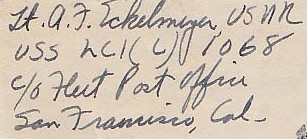 Lt. A. F. Eckelmeyer, USNR
USS LCI(L) 1068
c/o Fleet Post Office
San Francisco, Cal.